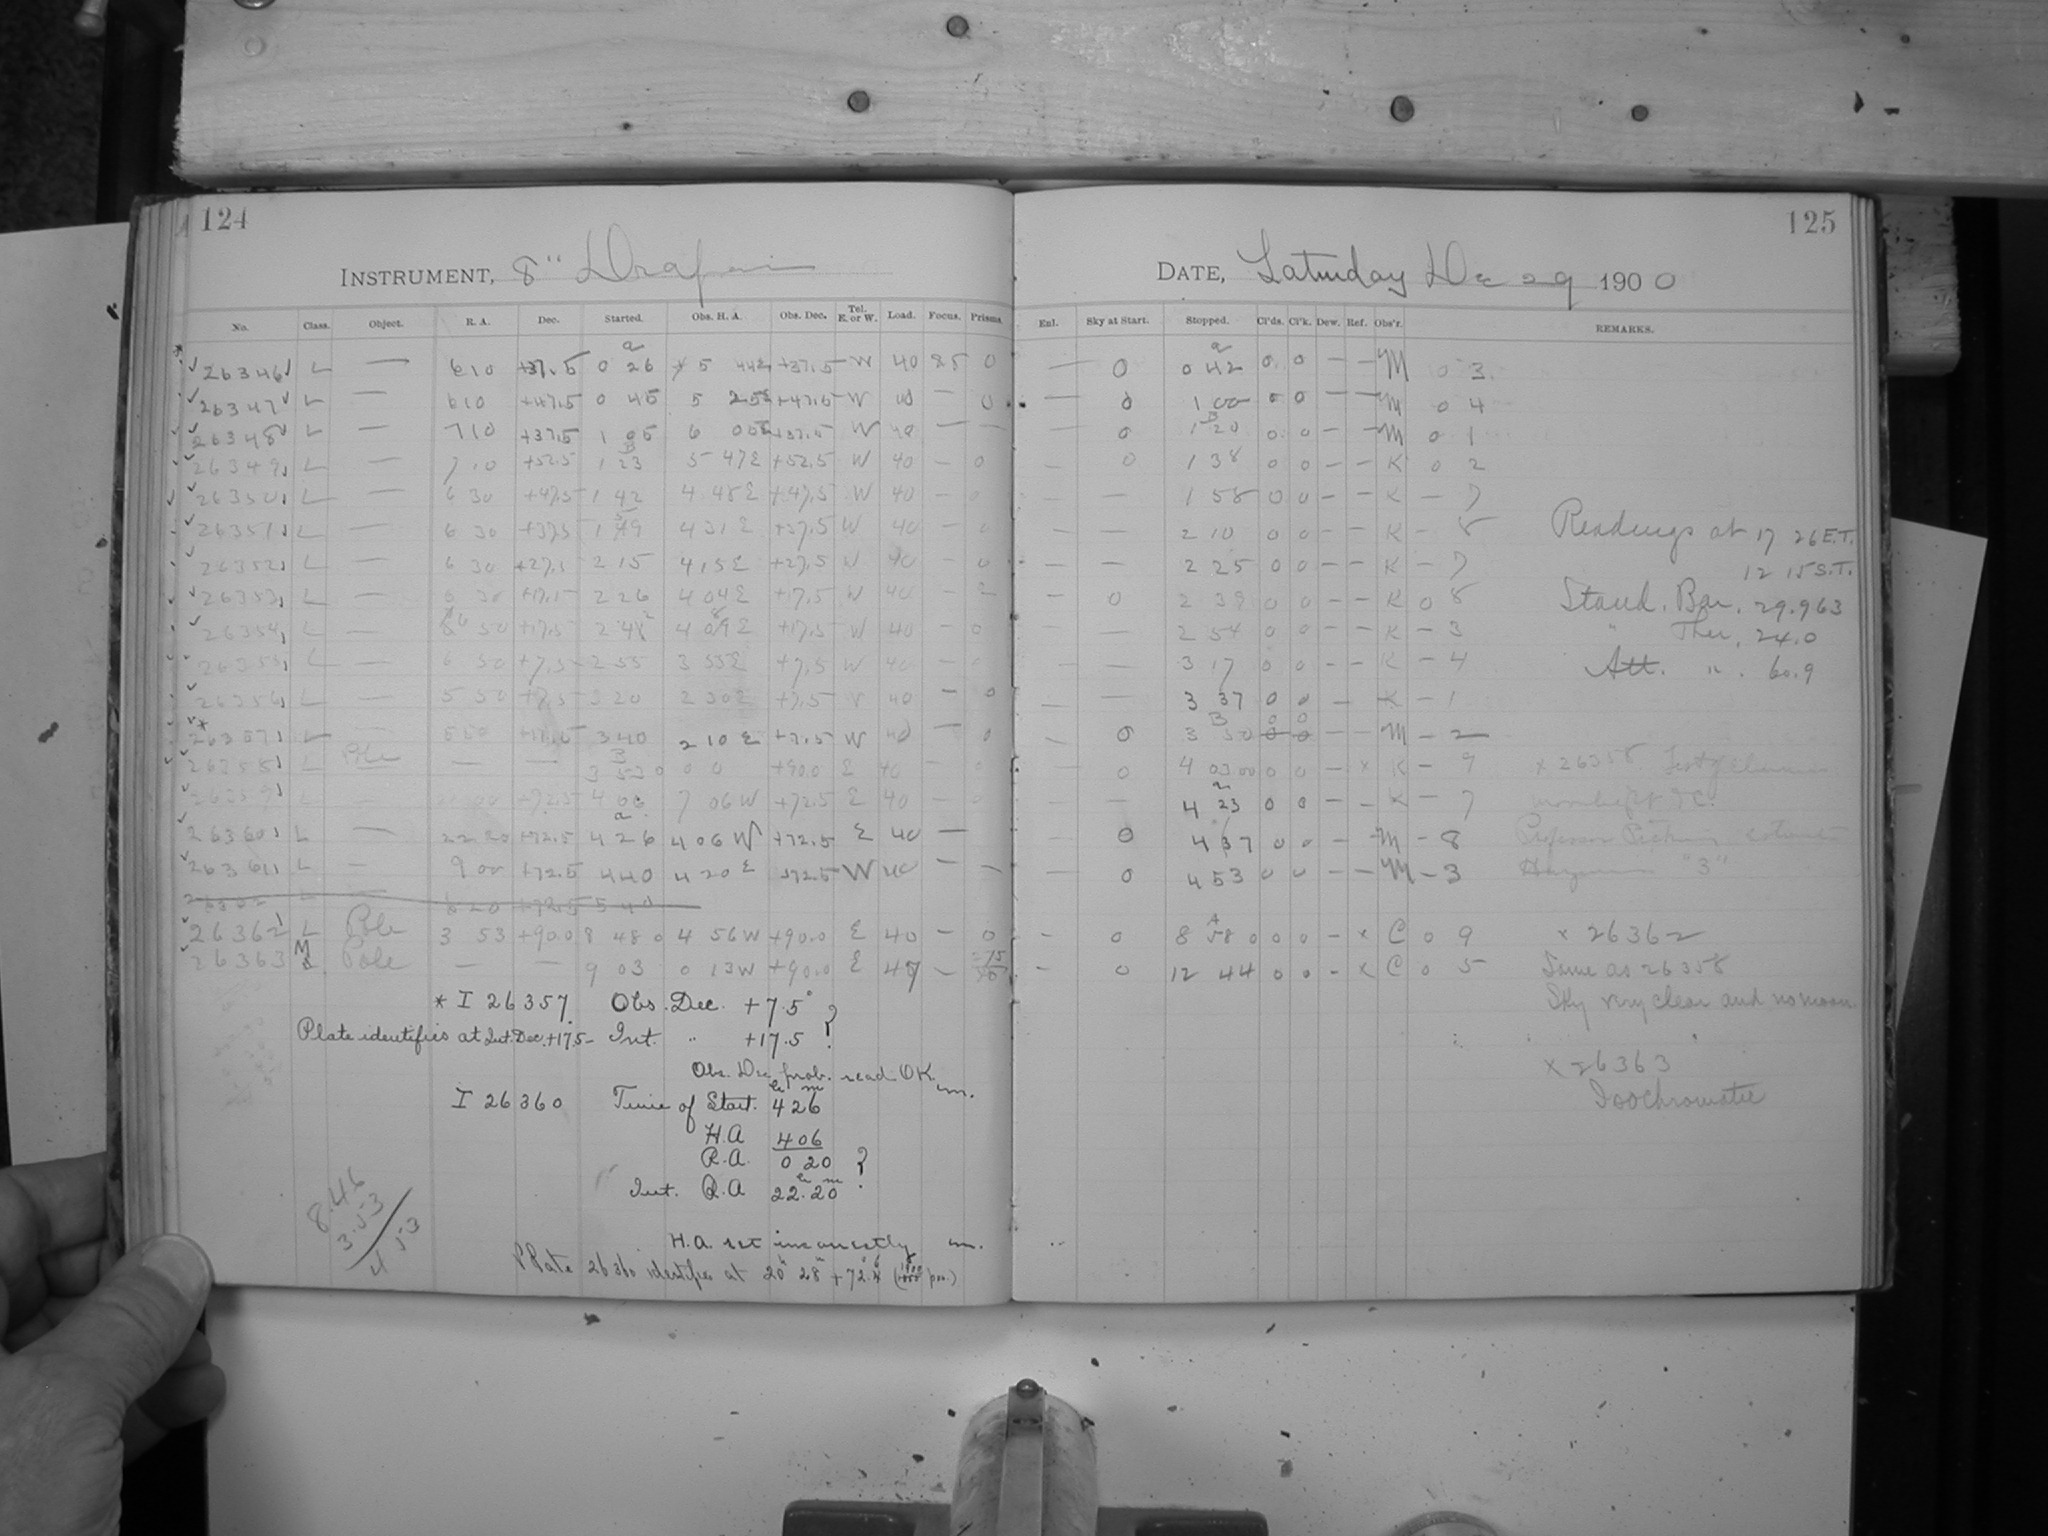 124
INSTRUMENT, 8" Draper
No. Class. Object. R. A. Dec. Started. Obs. H. A. Obs. Dec. Tel. E. or W. Load. Focus. Prisms.
26346 L — 6 10 +37.5 0 26 5 44E +37.5 W 40 85 0
26347 L — 6 10 +47.5 0 45 5 25E +47.5 W 40 — 0
26348 L — 7 10 +37.5 1 05 6 00E +37.5 W 40 — —
26349 L — 7 10 +52.5 1 23 5 47E +52.5 W 40 — 0
26350 L — 6 30 +47.5 1 42 4 48E +47.5 W 40 — 0
26351 L — 6 30 +37.5 1 59 4 31E +37.5 W 40 — 0
26352 L — 6 30 +27.5 2 15 4 15E +27.5 W 40 — 0
26353 L — 6 30 +17.5 2 26 4 04E +17.5 W 40 —
26354 L — 50 +17.5 2 42 4 08E +17.5 W 40 — 0
26355 L — 6 50 +7.5 2 55 3 55E +7.5 W 40 — 0
26356 L — 5 50 +7.5 3 20 2 30E +7.5 W 40 — 0
*26357 L — 5 50 3 40 2 10 E +7.5 W 40 — 0
26358 L Pole — — 3 53 0 0 0 +90.0 E 40 — 0
26359 L — +72.5 4 06 7 06 W +72.5 E 40 — 0
26360 L — 22 20 +72.5 4 26 4 06 W +72.5 E 40 —
26361 L — 9 00 +72.5 4 40 4 20 E +72.5 W 40 — —
L 6 20 +72.5 5 40
26362 L Pole 3 53 +90 0 8 48 0 4 56W +90.0 E 40 — 0
26363 M Pole — — 9 03 0 13W +90.0 E 47 —
* I 26357 Obs. Dec. +7.5° ?
Plate identifies at Int. Dec. +17.5 — Int. " +17.5
Obs. Dec. prob. read OK. m.
I 26360 Time of Start. 4h 26m
H.A 4 06
R.A. 0 20 ?
Int. R.A 22h 20m
H.A. set incorrectly m.
Plate 26360 identifies at 20h 28m
8.46
3.53
4 53
125
DATE, Saturday Dec 29 1900
Enl. Sky at Start. Stopped. Cl'ds. Cl'k. Dew. Ref. Obs'r. REMARKS.
— 0 0 42 0 0 — — M 0 3
— 0 1 00 0 0 — — M 0 4
0 1 20 0 0 — — M 0 1
— 0 1 38 0 0 — — K 0 2
— — 1 58 0 0 — — K — 7
— — 2 10 0 0 — — K — 8
— — 2 25 0 0 — — K — 7
0 2 39 0 0 — — K 0 8
— 2 54 0 0 — — K — 3
— — 3 17 0 0 — — K — 4
— — 3 37 0 0 — K — 1
— 0 3 50 0 0 — — M — 2
0 4 03 00 0 0 — x K — 9
— 4 23 0 0 — — K — 7
0 4 37 0 0 — — M — 8
0 4 53 0 0 — — M — 3
— 0 8 58 0 0 0 — x C 0 9
— 0 12 44 0 0 — x C 0 5
Readings at 17 26 E.T.
12 15 S.T.
Stand. Bar. 29.963
" Ther. 24.0
Att. " 60.9
x 26358
Professor
"3"
x 26362
Same as 26358
Sky very clear and no moon
x 26363
Isochromatic